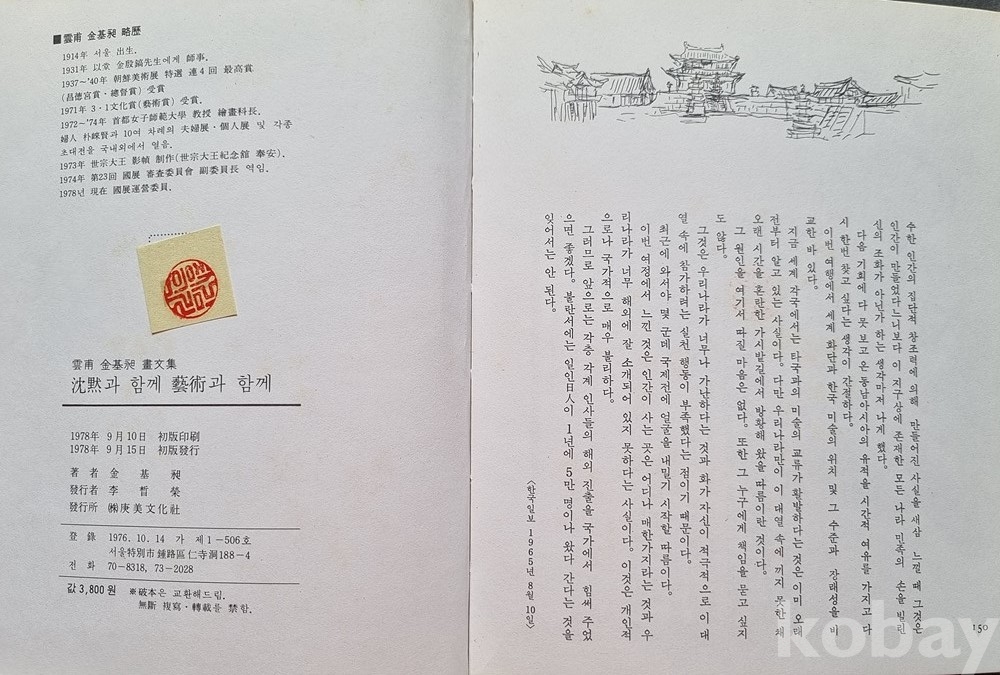 ■雲甫 金基昶 略歷
1914年 서울 出生.
1931年 以堂 金殷鎬先生에게 師事.
1937~'40年 朝鮮美術展 特選 連4回 最高賞
(昌德宮賞·總督賞) 受賞
1971年 3·1文化賞(藝術賞) 受賞.
1972~'74年 首都女子師範大學 敎授 繪畫科長.
婦人 朴崍賢과 10여 차례의 夫婦展·個人展 및 각종
초대전을 국내외에서 엶음.
1973年 世宗大王 影幀 制作(世宗大王紀念舘 奉安).
1974年 第23回 國展 審査委員會 副委員長 역임.
1978년 現在 國展運營委員.
雲甫 金基昶 畫文集
沈默과 함께 藝術과 함께
1978年 9月10日 初版印刷
1978年 9月15日 初版發行
著者 金基昶
發行者 李晳榮
發行所 ㈱庚美文化社
登錄 1976.10.14 가 제1-506호
서울特別市 鍾路區 仁寺洞188-4
전화 70-8318, 73-2028
값 3,800원 ※破本은 교환해드림.
無斷 複寫·轉載를 禁함.
수한 인간의 집단적 창조력에 의해 만들어진 사실을 새삼 느낄 때 그것은
인간이 만들었다느니보다 이 지구상에 존재한 모든 나라 민족의 손을 빌린
신의 조화가 아닌가 하는 생각마저 나게 했다.
다음 기회에 다 못 보고 온 동남아시아의 유적을 시간적 여유를 가지고 다
시 한번 찾고 싶다는 생각이 간절하다.
이번 여행에서 세계 화단과 한국 미술의 위치 및 그 수준과 장래성을 비
교한 바 있다.
지금 세계 각국에서는 타국과의 미술의 교류가 활발하다는 것은 이미 오래
전부터 알고 있는 사실이다. 다만 우리나라만이 이 대열 속에 끼지 못한 채
오랜 시간을 혼란한 가시밭길에서 방황해 왔을 따름이란 것이다.
그 원인을 여기서 따질 마음은 없다. 또한 그 누구에게 책임을 묻고 싶지
도 않다.
그것은 우리나라가 너무나 가난하다는 것과 화가 자신이 적극적으로 이 대
열 속에 참가하려는 실천 행동이 부족했다는 점이기 때문이다.
최근에 와서야 몇 군데 국제전에 얼굴을 내밀기 시작할 따름이다.
이번 여정에서 느낀 것은 인간이 사는 곳은 어디나 매한가지라는 것과 우
리나라가 너무 해외에 잘 소개되어 있지 못하다는 사실이다. 이것은 개인적
으로나 국가적으로 매우 불리하다.
그러므로 앞으로는 각층 각계 인사들의 해외 진출을 국가에서 힘써 주었
으면 좋겠다. 불란서에는 일인日人이 1년에 5만 명이나 왔다 간다는 것을
잊어서는 안 된다.
〈한국일보 1965년 8월 10일〉
150
kobay